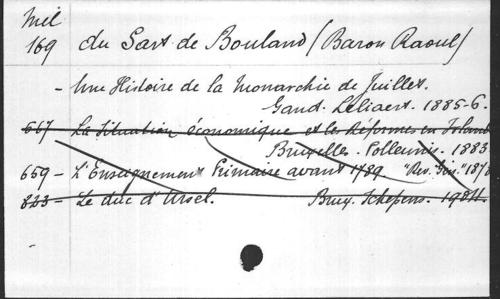 Mil
169 du Sart de Bouland (Baron Raoul)
- Une Histoire de la Monarchie de Juillet.
Gand. Leliaert. 1885-6.
667 - La Situation économique et les Réformes en Irlande
Bruxelles. Polleunis. 1883
659 - L'Enseignement Primaire avant 1789 "Rev. Gén." 1878
823 - Le duc d'Ursel. Brux. Schepens. 1904.